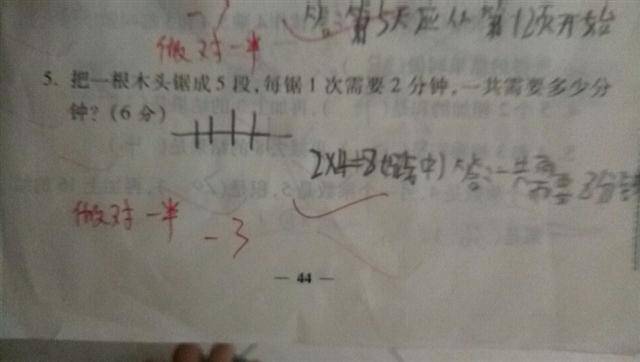 -3
答:第5天应从第12页开始
做对一半
5. 把一根木头锯成5段,每锯1次需要2分钟,一共需要多少分
钟?(6分)
2×4=8(分钟) 答:一共需要8分钟
做对一半 -3
— 44 —